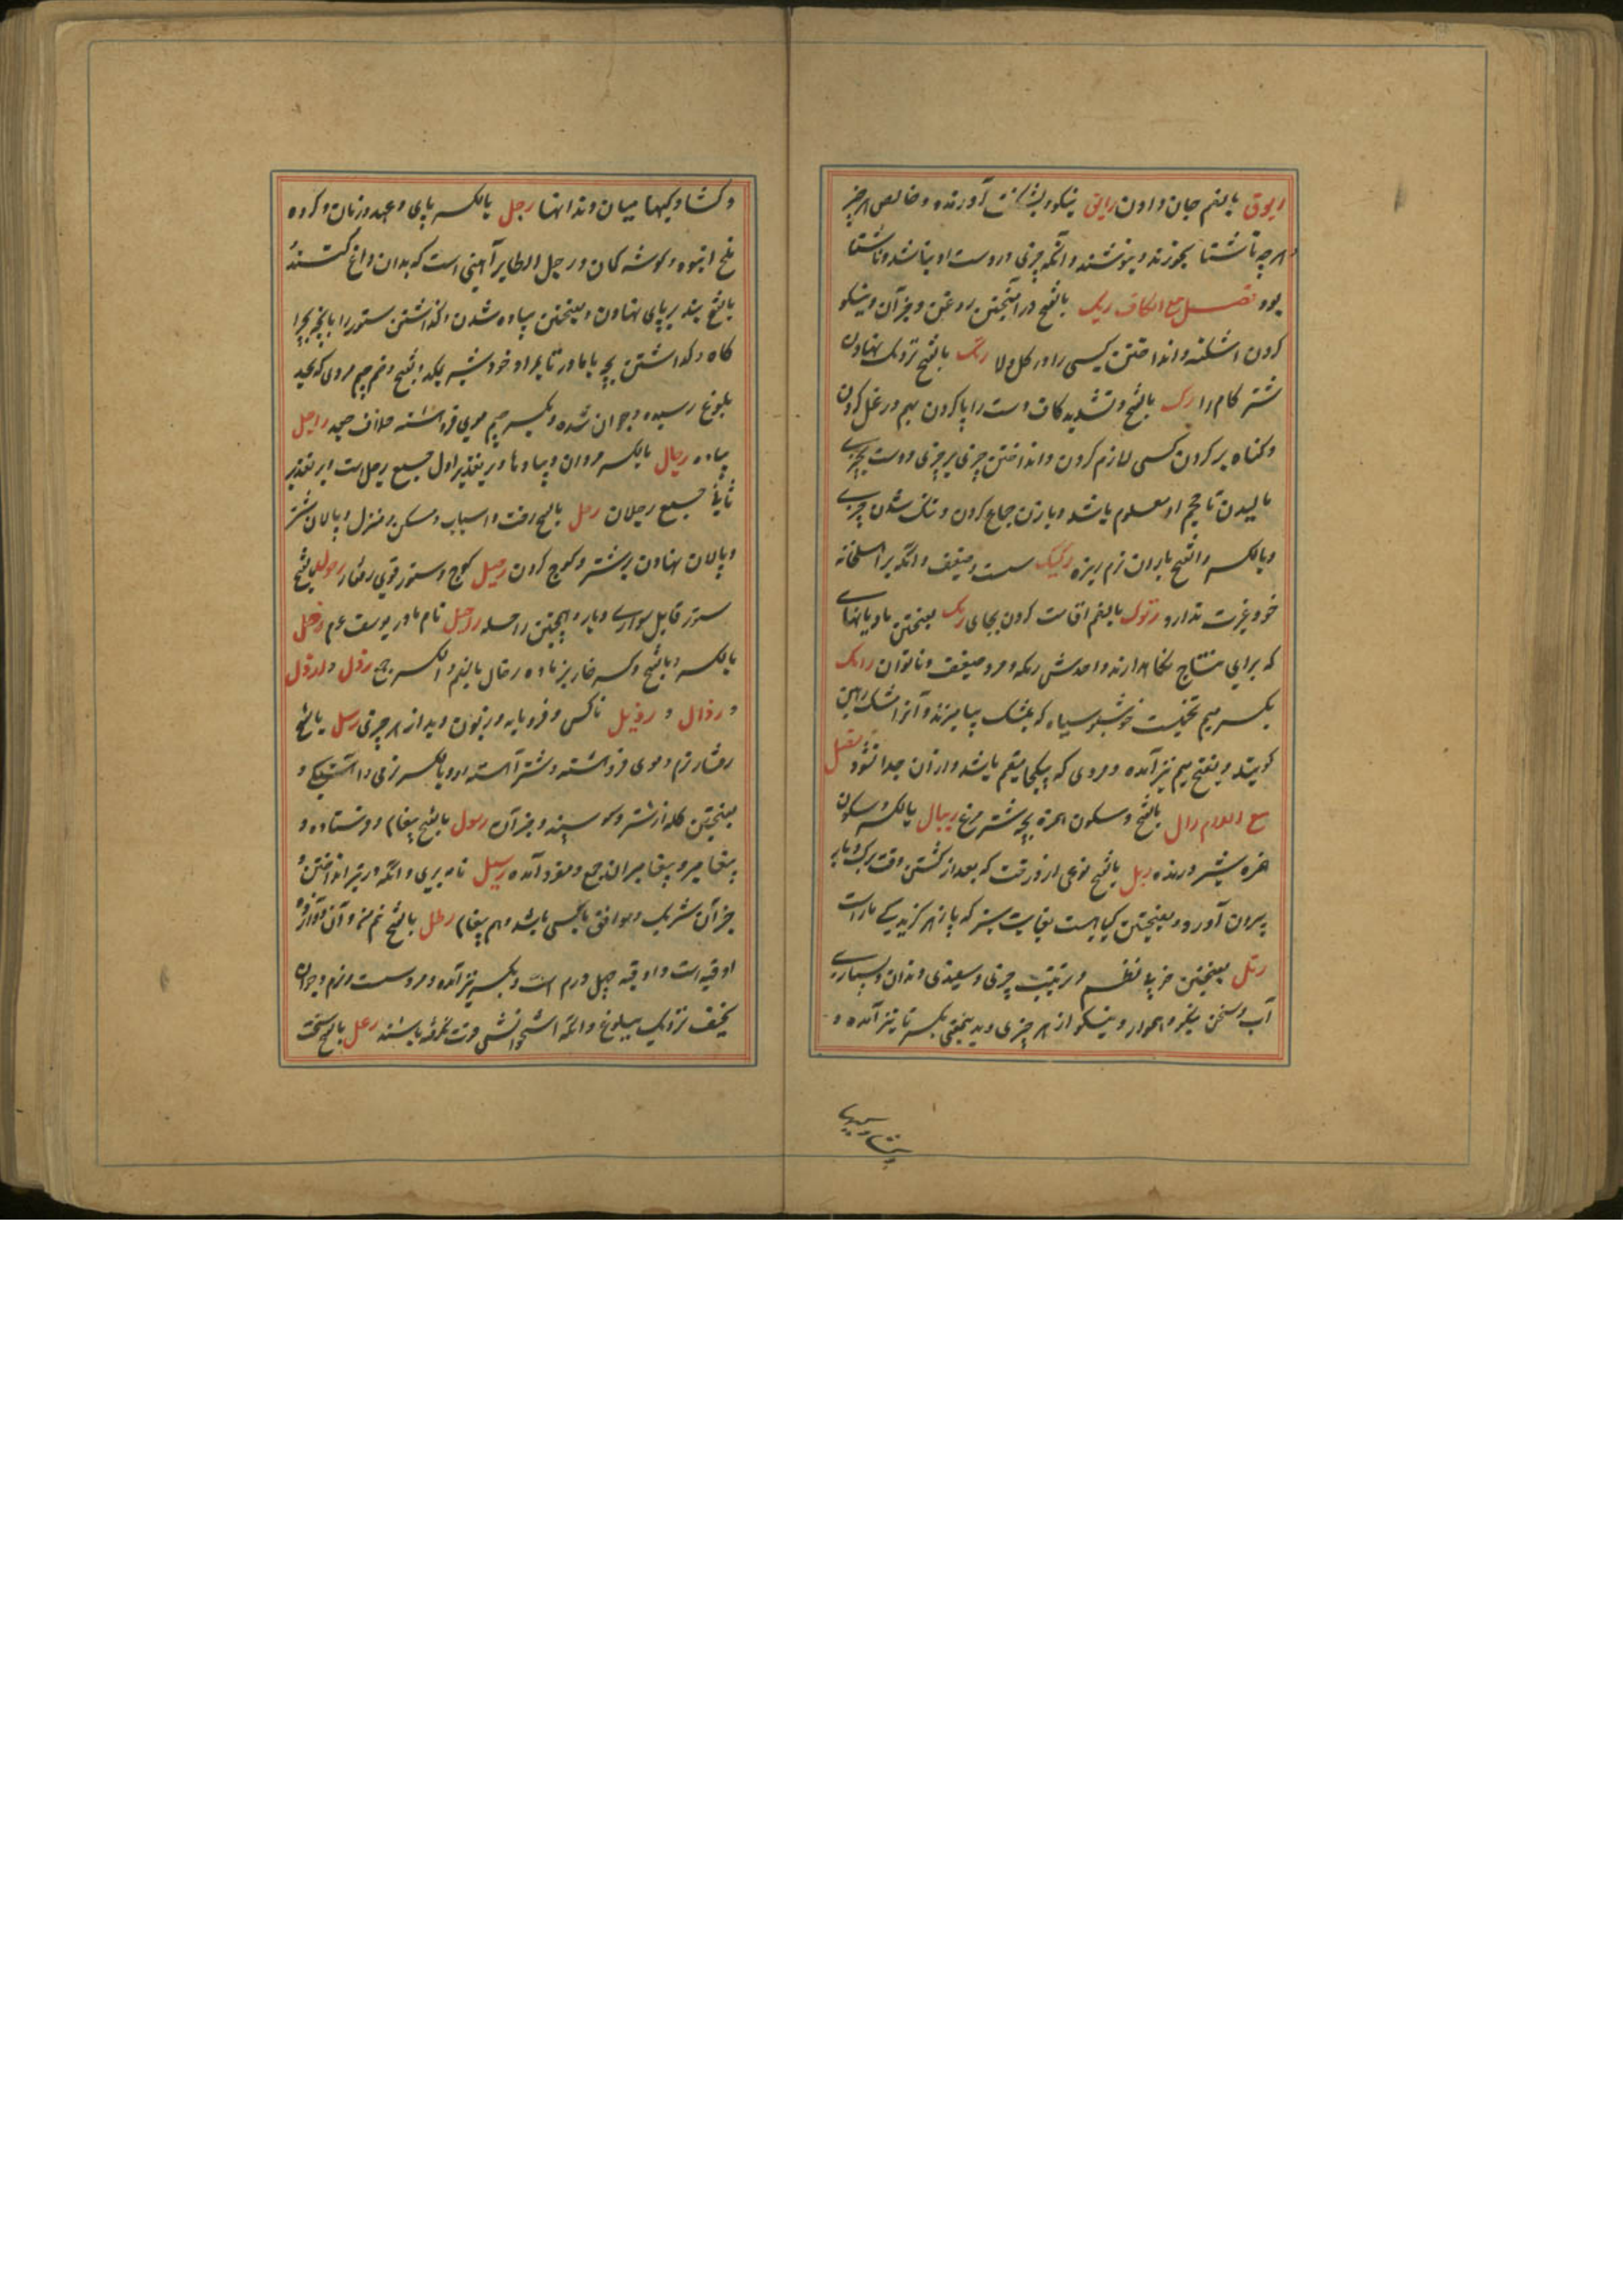 ریوق بالضم جان دادن رایق نیکو و بشگفت آورنده و خالص هر چیز
و هرچه ناشتا بخورند و بنوشند و آنکه چیزی در دست او نباشد و ناشتا
بود فصل مع الکاف ربک بالفتح در آمیختن روغن و جز آن و نیکو
کردن اشکنه و انداختن کسی را در گل و لا رتک بالفتح نزدیک نهادن
شتر گام را رک بالفتح و تشدید کاف دست را پا کردن بهم در غل کردن
و گناه بر گردن کسی لازم کردن و انداختن چیزی بر چیزی و دست بچیزی
مالیدن تا حجم او معلوم باشد و با زن جماع کردن و تنک شدن چیزی
و بالکسر و الفتح باران نرم ریزه رکیک سست و ضعیف و آنکه بر اهل خانه
خود غیرت ندارد رموک بالضم اقامت کردن بجای رمک بفتحتین مادیانهای
که برای نتاج نگاه دارند واحدش رمکه و مرد ضعیف و ناتوان رامک
بکسر میم چیزیست خوشبو سیاه که بمشک بیامیزند و آنرا شک رامین
گویند و بفتح میم نیز آمده و مردی که بیکجا مقیم باشد و از آن جدا نشود فصل
مع اللام رال بالفتح و سکون همزه بچه شتر مرغ ریبال بالکسر و سکون
همزه شیر درنده ربل بالفتح نوعی از درخت که بعد از گذشتن وقت برگ و بار
بیرون آورد و بفتحتین گیاهیست بغایت سبز که پازهر گزیدگی مار است
رتل بفتحتین خوبی نظم و ترتیب چیزی و سپیدی دندان و بسیاری
آب و سخن نیکو و هموار و نیکو از هر چیزی و بدین معنی بکسر تا نیز آمده و
و گشادگیها میان دندانها رجل بالکسر پای و عهد و زمان و گروه
ملخ انبوه و گوشه کمان و رجل الطایر آهنی است که بدان داغ کنند
بالفتح بند بر پای نهادن و بفتحتین پیاده شدن و گذاشتن ستور را با بچه بچرا
گاه و گذاشتن بچه با مادر تا بمراد خود شیر بمکد و بفتح و ضم جیم مردی که بحد
بلوغ رسیده و جوان شده و بکسر جیم موی فروهشته خلاف جعد راجل
پیاده رجال بالکسر مردان و پیادها و بر تقدیر اول جمع رجل است و بر تقدیر
ثانی جمع رجلان رحل بالفتح رخت و اسباب و مسکن و منزل و پالان شتر
و پالان نهادن بر شتر و کوچ کردن رحیل کوچ و ستور قوی رفتار رحول بالفتح
ستور قابل سواری و بار و همچنین راحله راحیل نام مادر یوسف عم رخل
بالکسر و بالفتح و کسر خا بز ماده رخال بالضم و الکسر جمع رذل و ارذل
و رذال و رذیل ناکس و فرومایه و زبون و بد از هر چیزی رسل بالفتح
رفتار نرم و موی فروهشته و شتر آهسته رو و بالکسر نرمی و آهستگی و
بفتحتین گله از شتر و گوسپند و جز آن رسول بالفتح پیغام و فرستاده و
پیغامبر و پیغامبران جمع و مفرد آمده رسیل نامه بری و آنکه در تیر انداختن و
جز آن شریک و موافق با کسی باشد و هم پیغام رطل بالفتح نیم من و آن دوازده
اوقیه است و اوقیه چهل درم است و بکسر نیز آمده و مرد سست و نرم و جوان
نحیف نزدیک ببلوغ و آنکه استخوانش قوت نگرفته باشند رعل بالفتح سخت